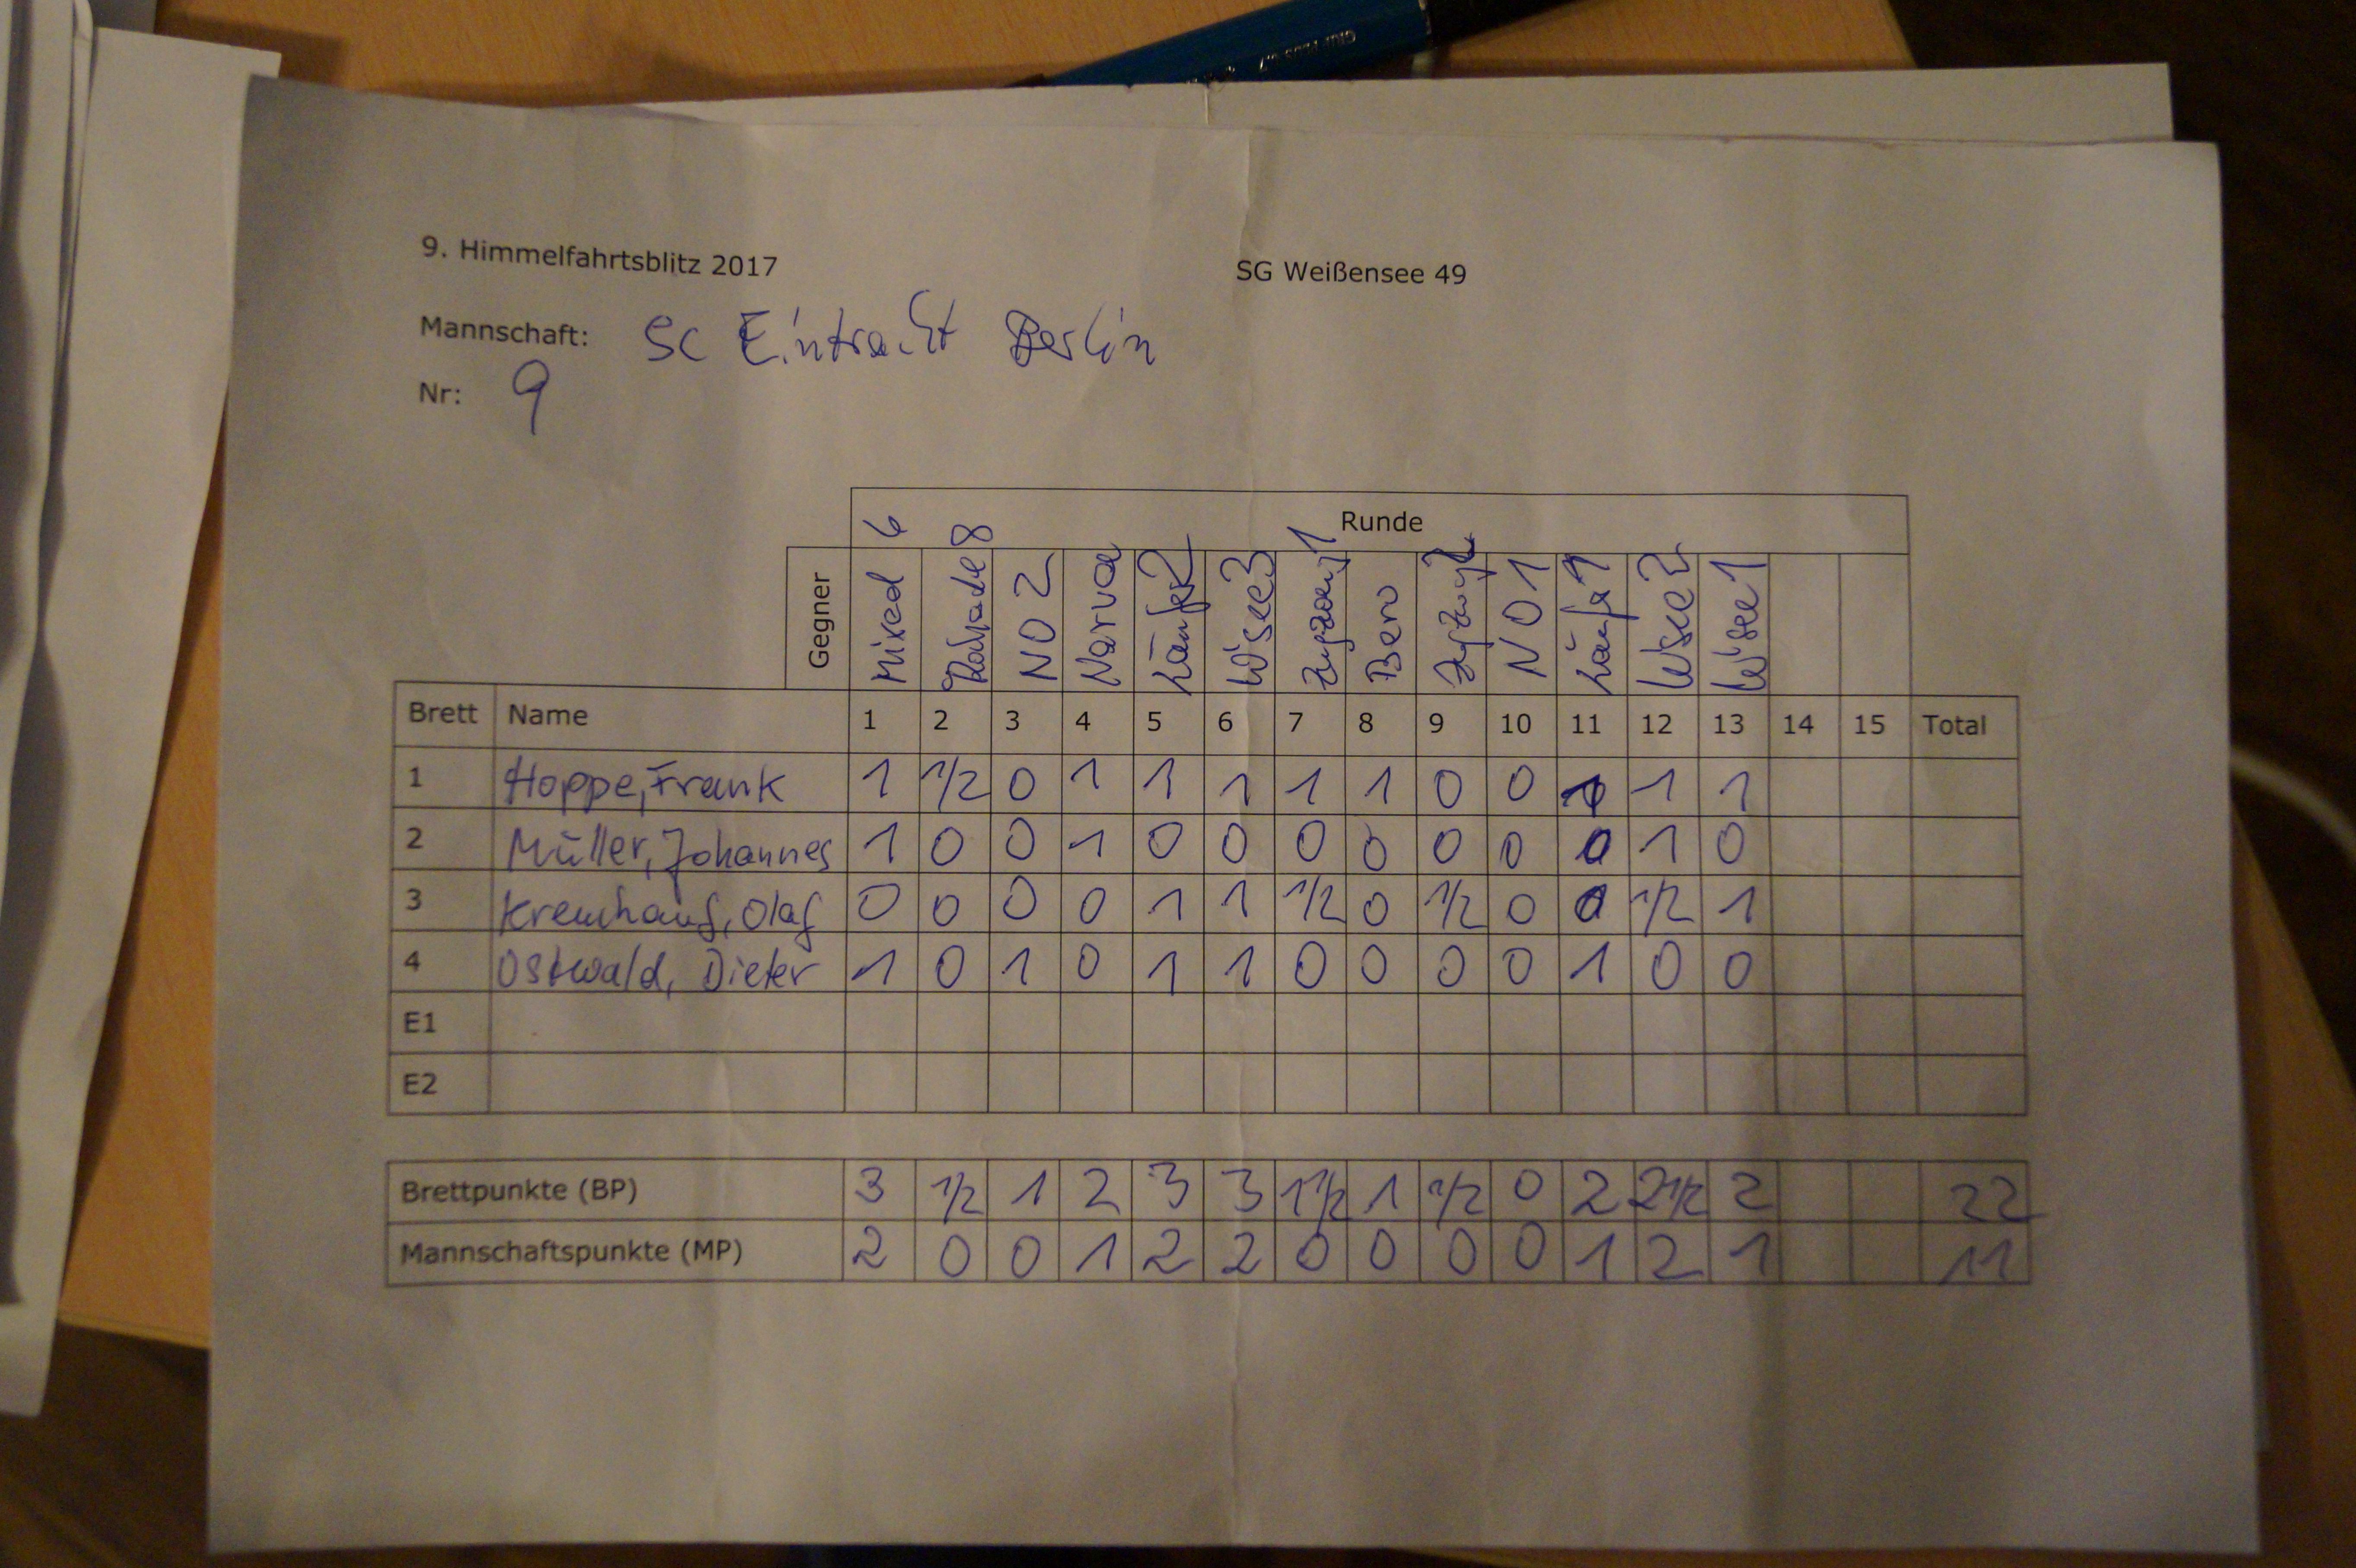 9. Himmelfahrtsblitz 2017 SG Weißensee 49
Mannschaft: SC Eintracht Berlin
Nr: 9
Runde
Gegner Mixed 6 Rochade 8 NO 2 Narva Läufer 2 W'see 3 Zugzwang 1 Bero Zugzwang 2 NO 1 Läufer 1 W'see 2 W'see 1
Brett Name 1 2 3 4 5 6 7 8 9 10 11 12 13 14 15 Total
1 Hoppe, Frank 1 1/2 0 1 1 1 1 1 0 0 1 1 1
2 Müller, Johannes 1 0 0 1 0 0 0 0 0 0 0 1 0
3 Olaf 0 0 0 0 1 1 1/2 0 1/2 0 0 1/2 1
4 Ostwald, Dieter 1 0 1 0 1 1 0 0 0 0 1 0 0
E1
E2
Brettpunkte (BP) 3 1/2 1 2 3 3 1 1/2 1 1/2 0 2 2 1/2 2 22
Mannschaftspunkte (MP) 2 0 0 1 2 2 0 0 0 0 1 2 1 11